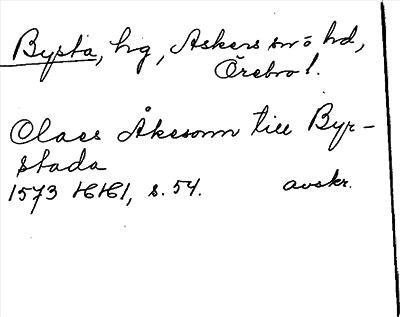 Bysta, hg, Askers sn ö hd,
Örebro l.
Claes Åkesonn till Byr-
stada
1573 HH1, s. 54. avskr.